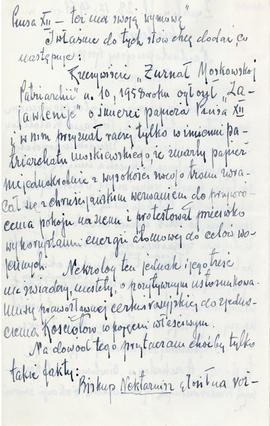 Piusa XII – też ma swoją wymowę"
I właśnie do tych słów chcę dodać co
następuje:
Rzeczywiście „Żurnał Moskowskoj
Patriarchii" n. 10, 1958 roku ogłosił „Za-
jawlenije" o śmierci papieża Piusa XII
w nim przyznał raczej tylko w imieniu pa-
triarchatu moskiewskiego, że zmarły papież
niejednokrotnie z wysokości swojego tronu zwra-
cał się z chrześcijańskim wezwaniem do przywró-
cenia pokoju na ziemi i protestował przeciwko
wykorzystaniu energii atomowej do celów wo-
jennych. Nekrolog ten jednak i jego treść
nie świadczą, niestety, o pozytywnym ustosunkowa-
niu się prawosławnej cerkwi rosyjskiej do zjedno-
czenia Kościołów w pojęciu właściwym.
Na dowód tego przytaczam choćby tylko
takie fakty:
Biskup Nektariusz głosił na róż-